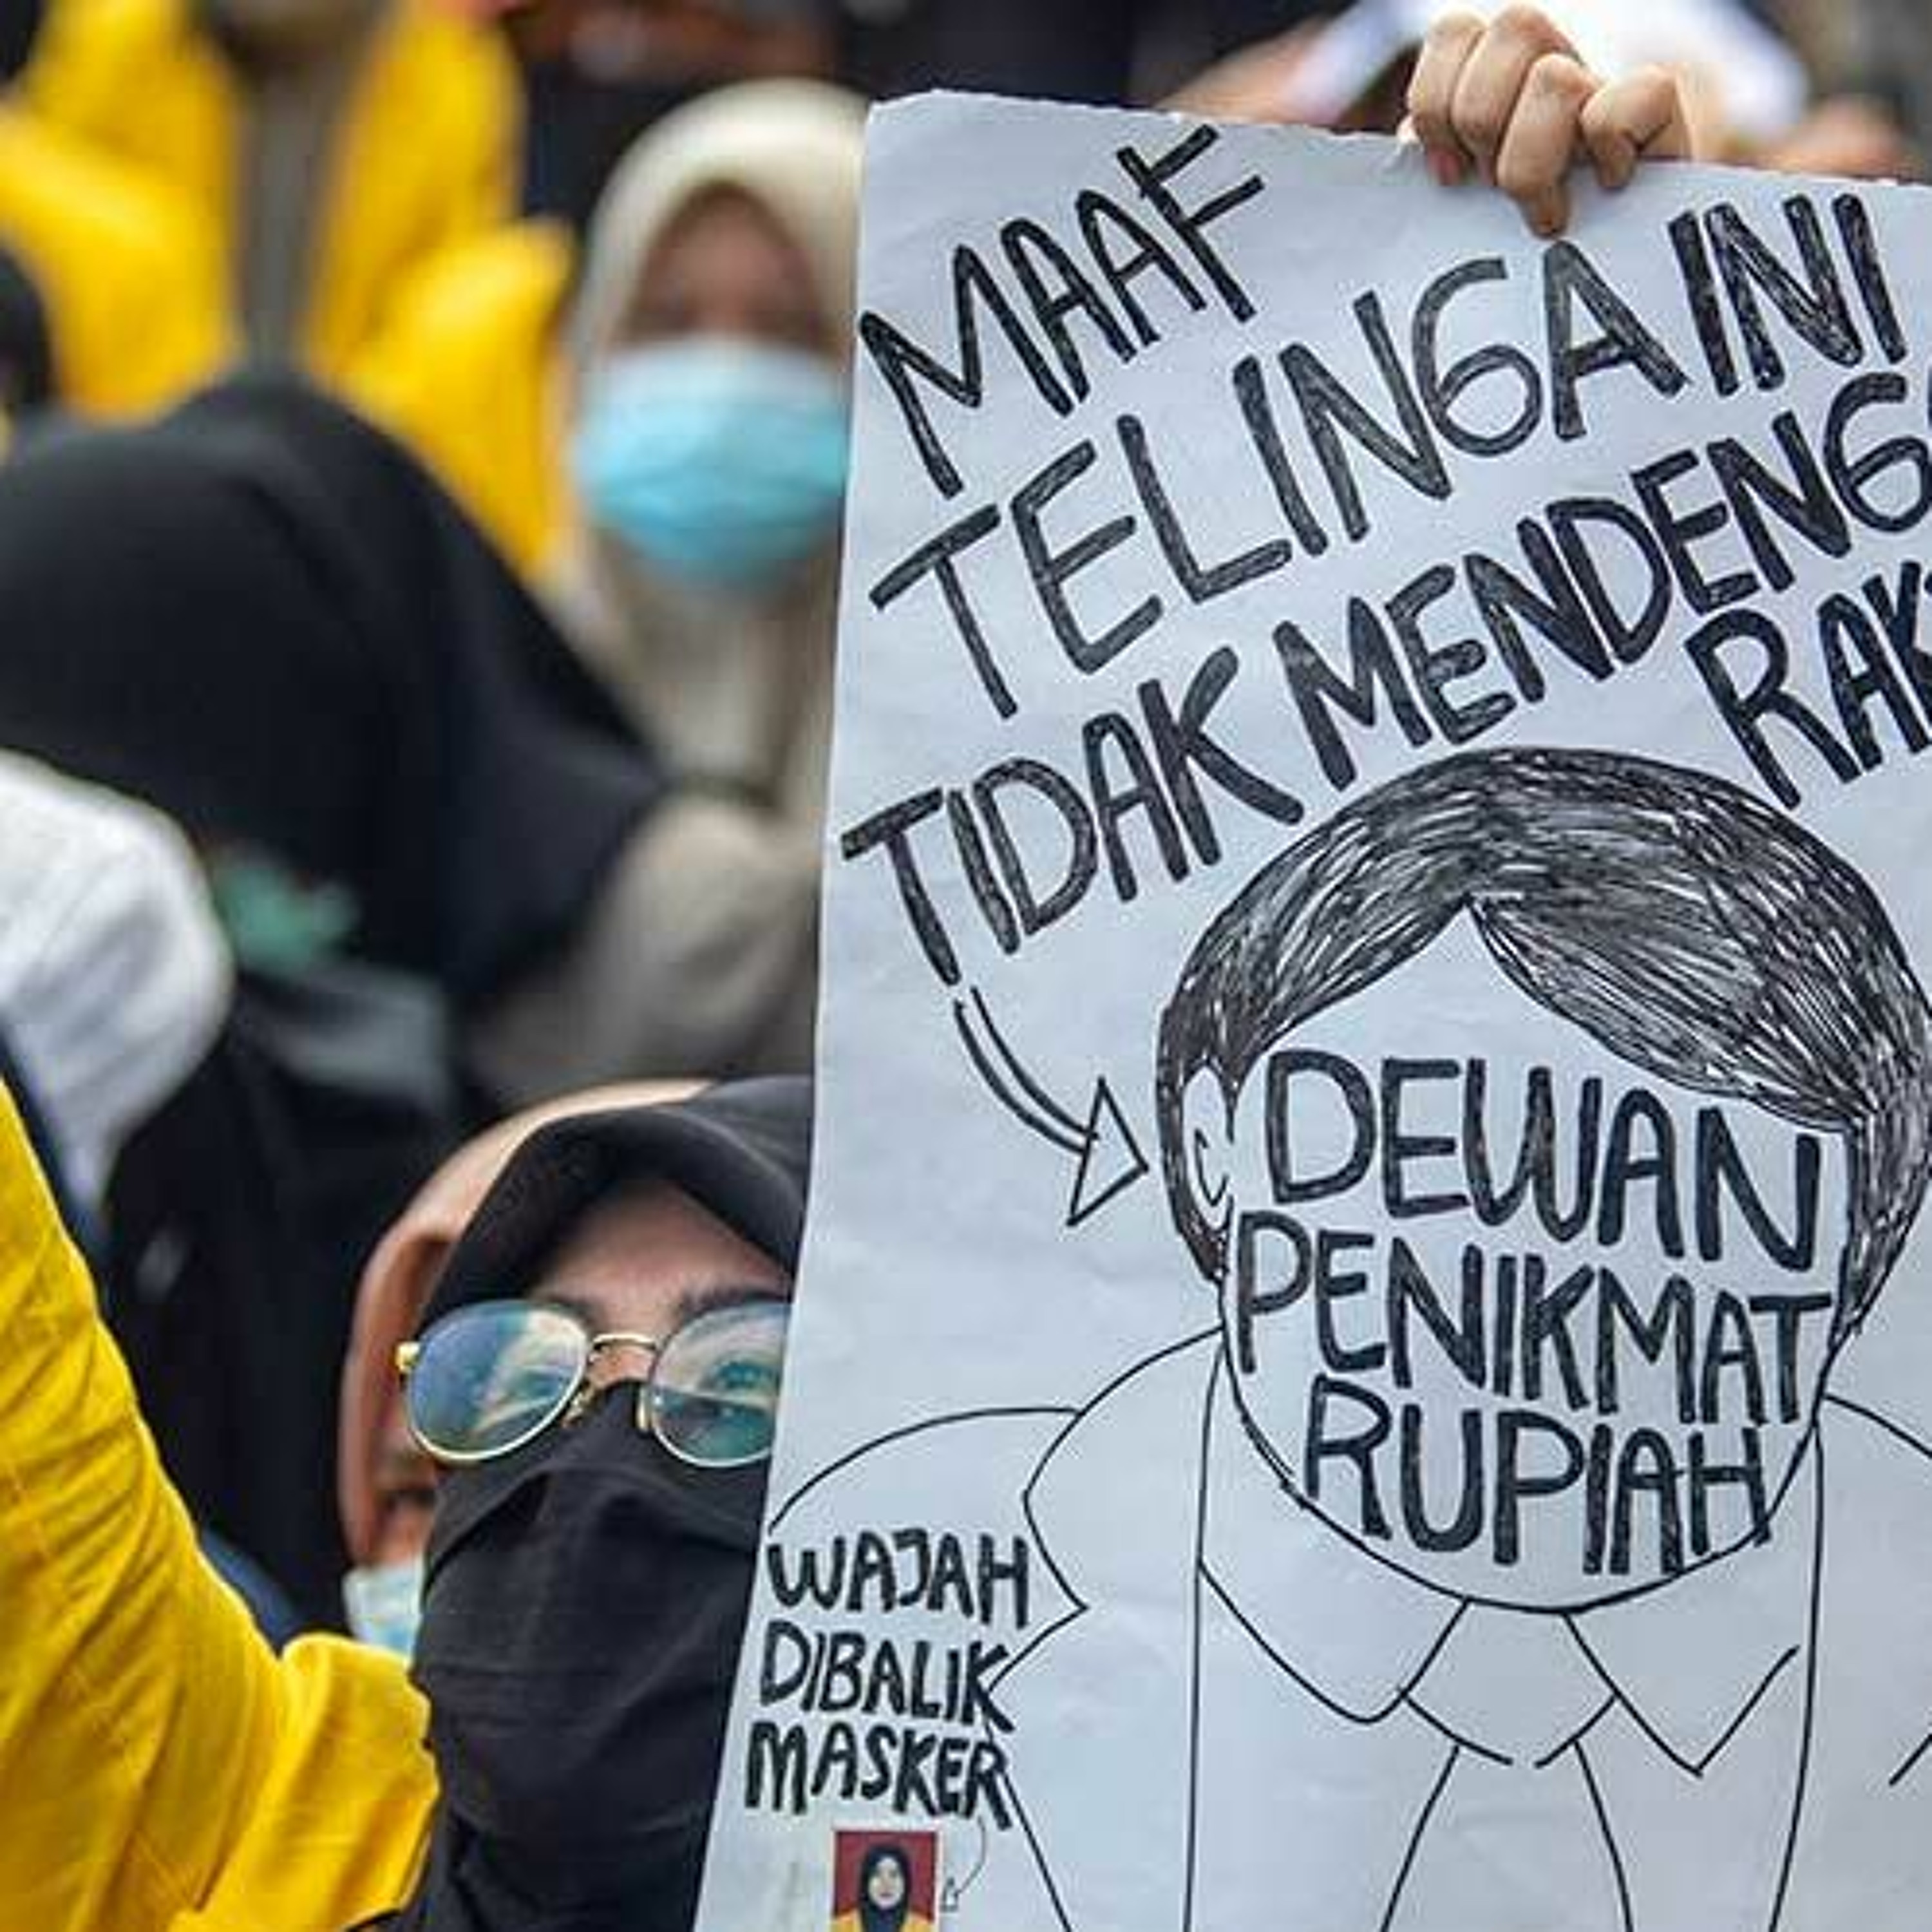 MAAF
TELINGA INI
TIDAK MENDENG
RAK
DEWAN
PENIKMAT
RUPIAH
WAJAH
DIBALIK
MASKER